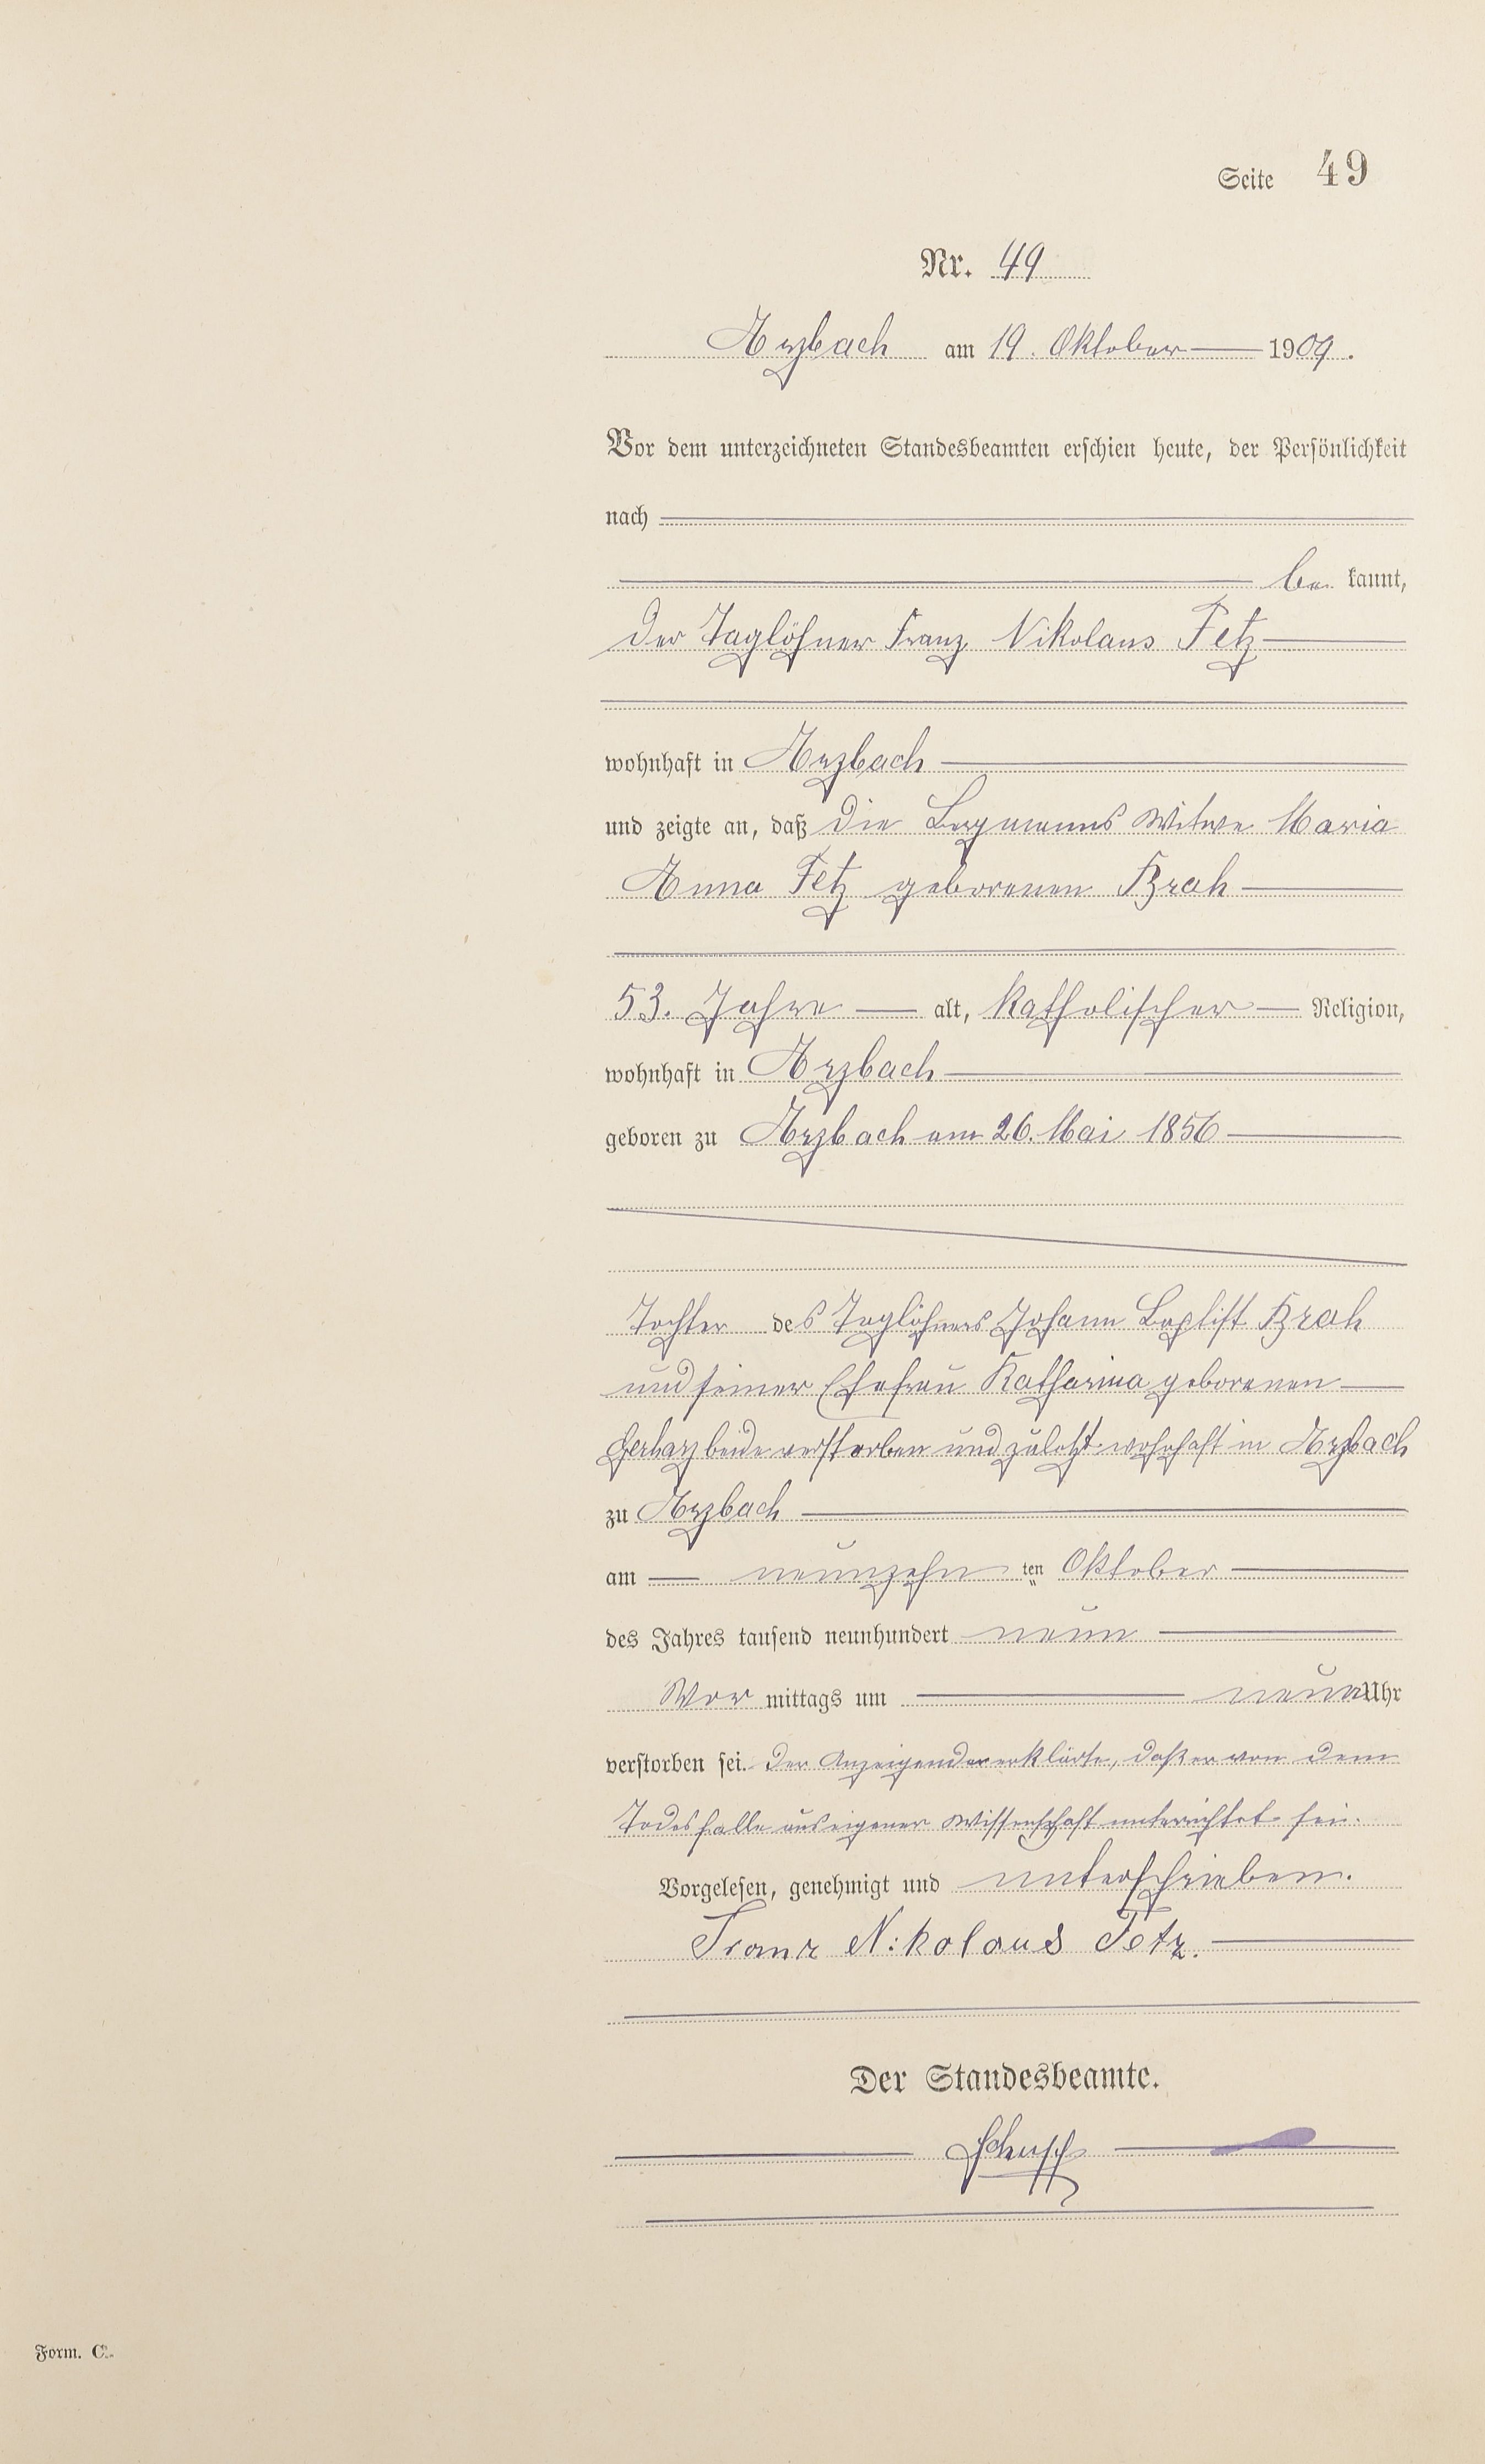 Seite 49
Nr. 49
Arzbach am 19. Oktober 1909.
Vor dem unterzeichneten Standesbeamten erschien heute, der Persönlichkeit
nach
be kannt,
der Taglöhner Franz Nikolaus Fetz
wohnhaft in Arzbach
und zeigte an, daß die Bergmanns Witwe Maria
Anna Fetz geborenen Krah
53. Jahre alt, katholischer Religion,
wohnhaft in Arzbach
geboren zu Arzbach am 26. Mai 1856
Tochter des Taglöhners Johann Baptist Krah
und seiner Ehefrau Katharina geborenen
Gerharz beide verstorben und zuletzt wohnhaft in Arzbach
zu Arzbach
am neunzehn ten Oktober
des Jahres tausend neunhundert neun
Vor mittags um neun Uhr
verstorben sei. Der Anzeigender erklärte, daß er von dem
Todesfalle aus eigener Wissenschaft unterrichtet sei.
Vorgelesen, genehmigt und unterschrieben.
Franz Nikolaus Fetz.
Der Standesbeamte.
Form. C.